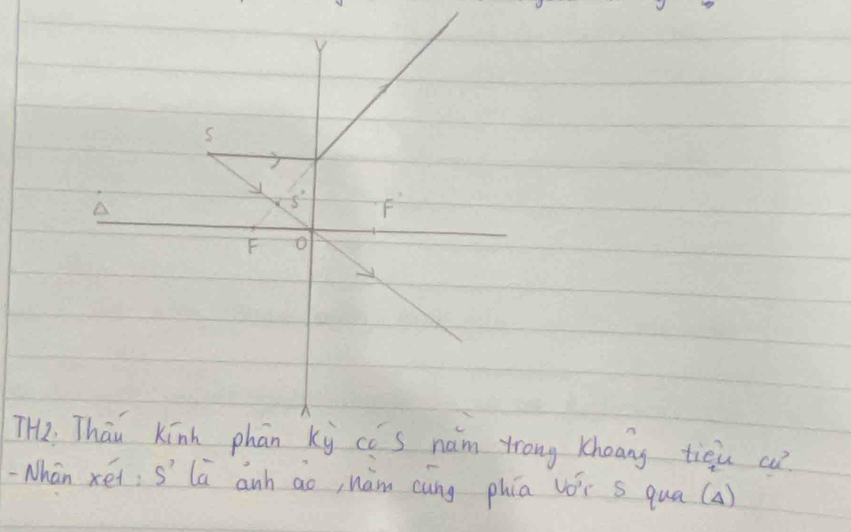 S
S'
Δ
F'
F
O
TH2: Thấu kính phân kỳ có S nằm trong khoảng tiêu cự.
- Nhận xét: S' là ảnh ảo, nằm cùng phía với S qua (Δ)